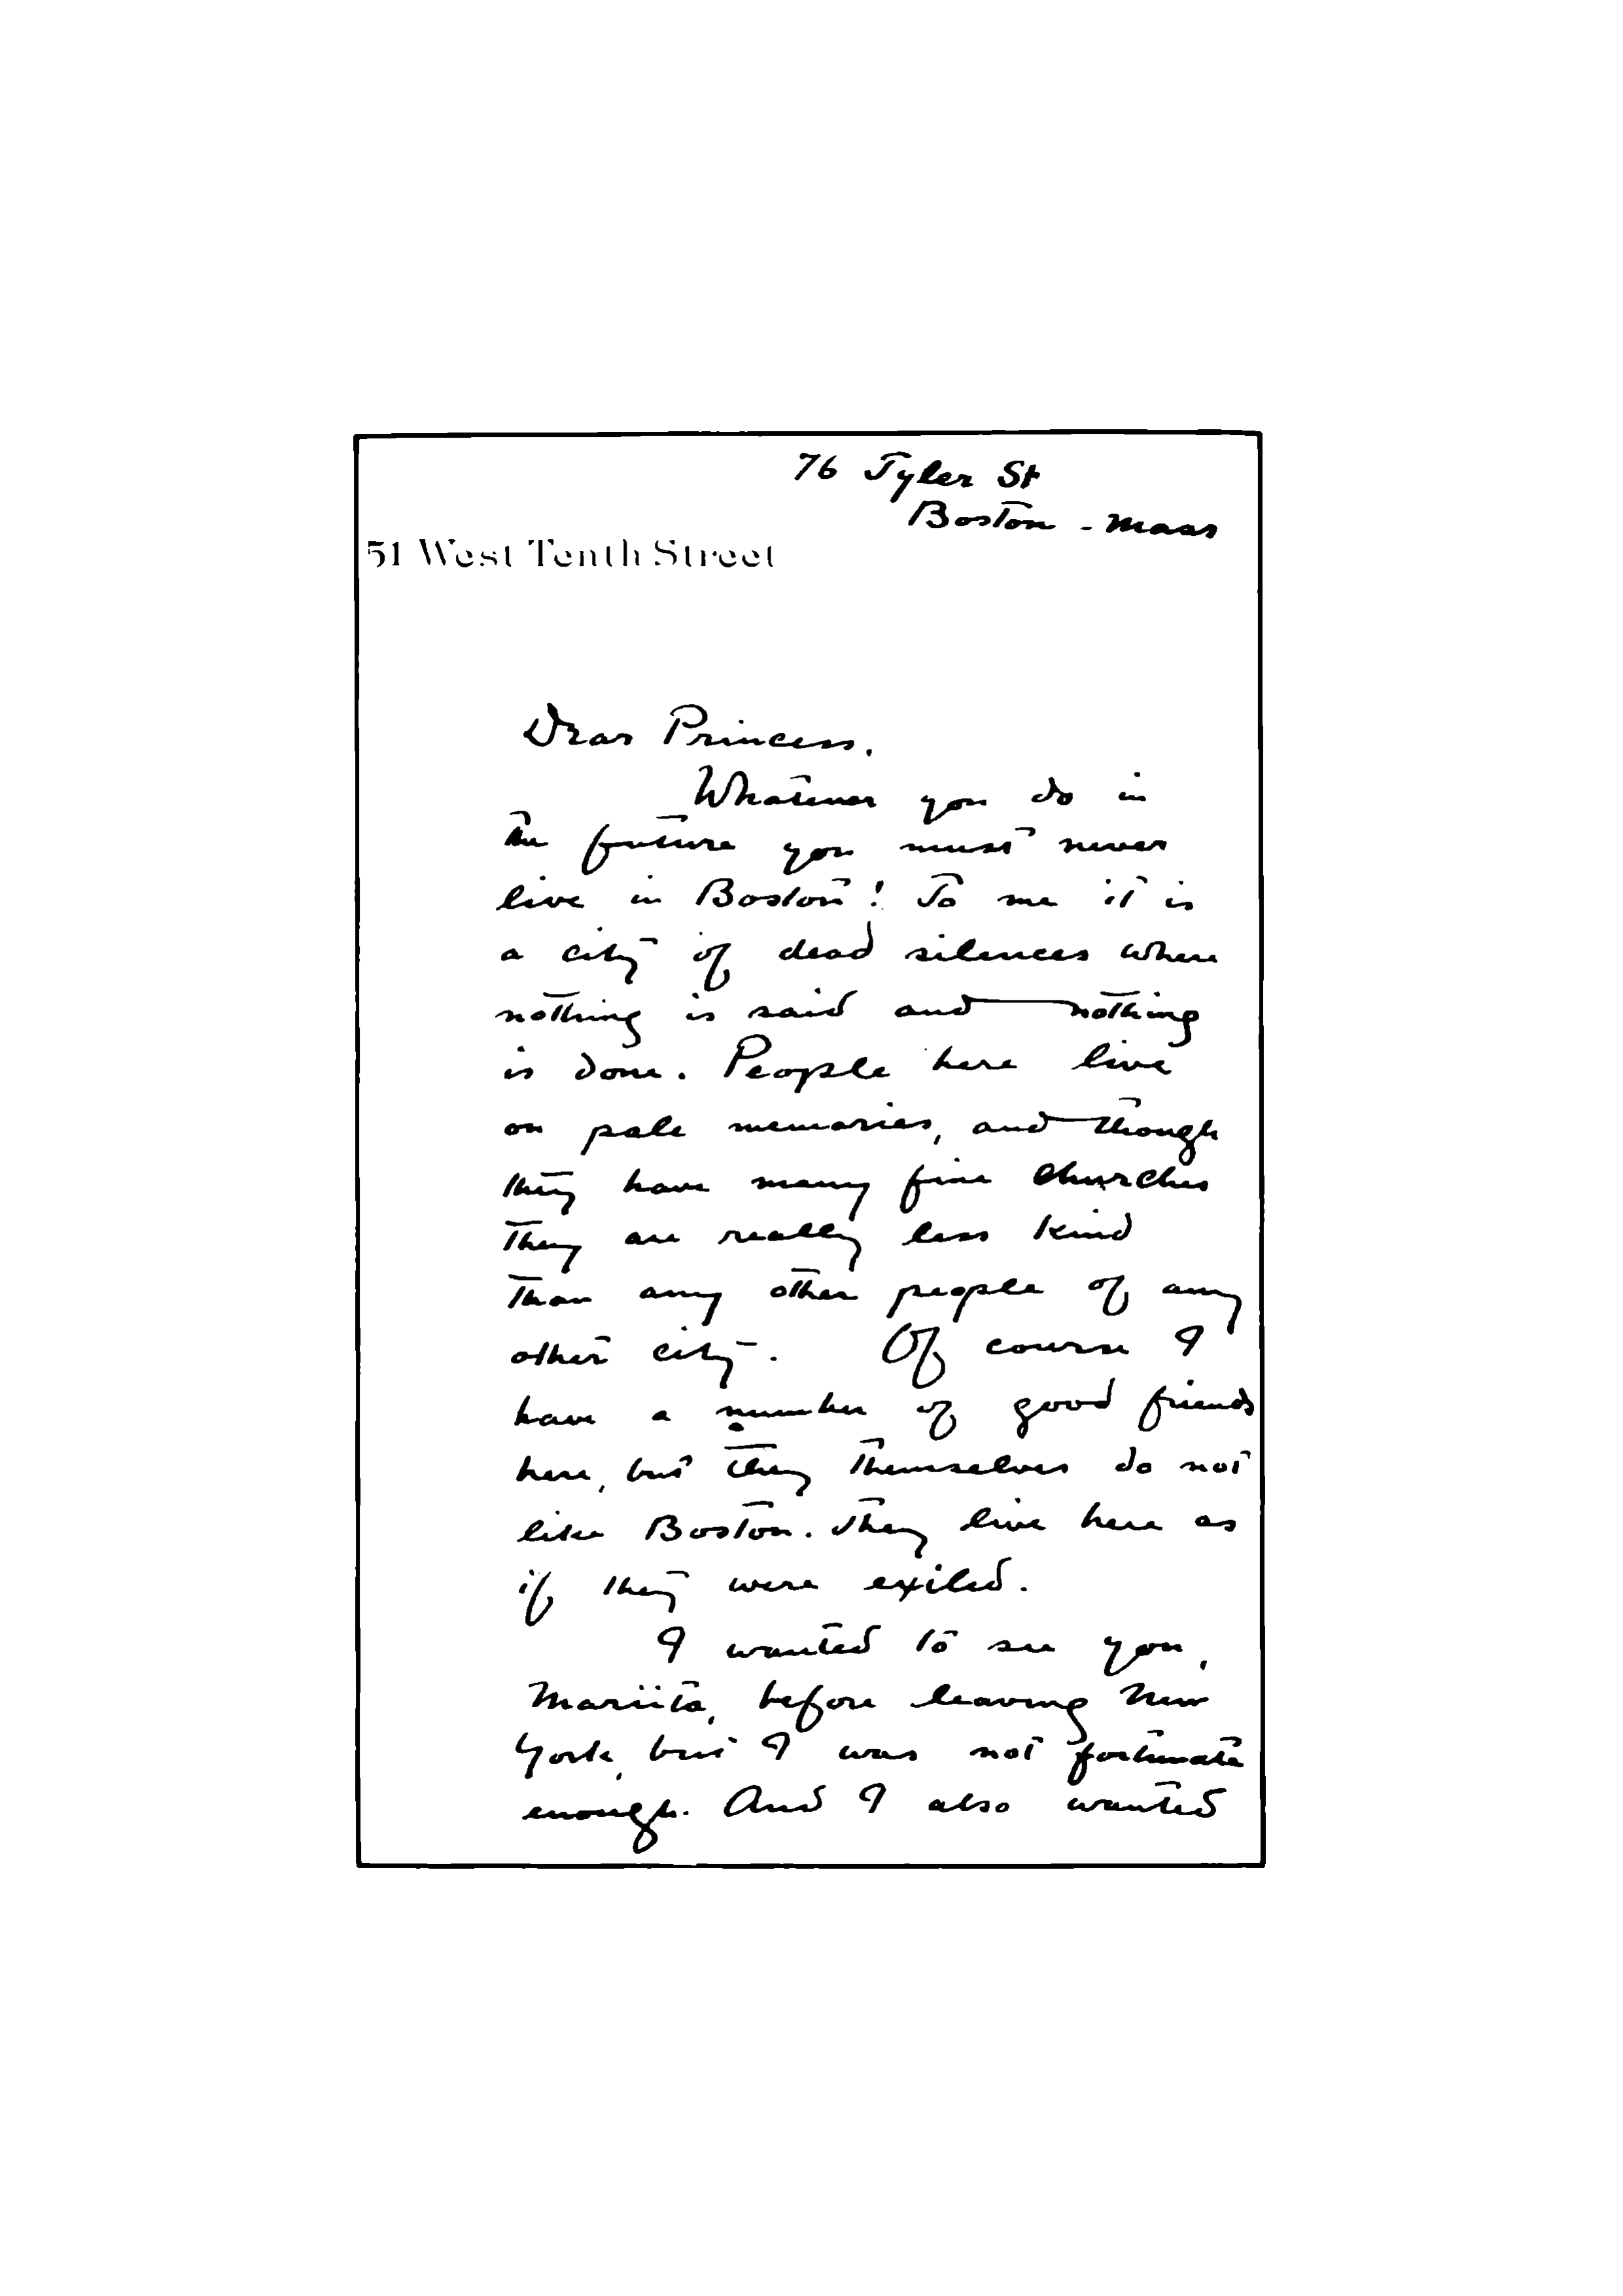 76 Tyler St
Boston - Mass
51 West Tenth Street
Dear Princess.
Whatever you do in
the future you must never
live in Boston! To me it is
a city of dead silences where
nothing is said and nothing
is done. People here live
on pale memories, and though
they have many fine churches
they are really less kind
than any other people of any
other city. Of course I
have a number of good friends
here, but they themselves do not
like Boston. They live here as
if they were exiled.
I wanted to see you,
Mariita, before leaving New
York, but I was not fortunate
enough. And I also wanted